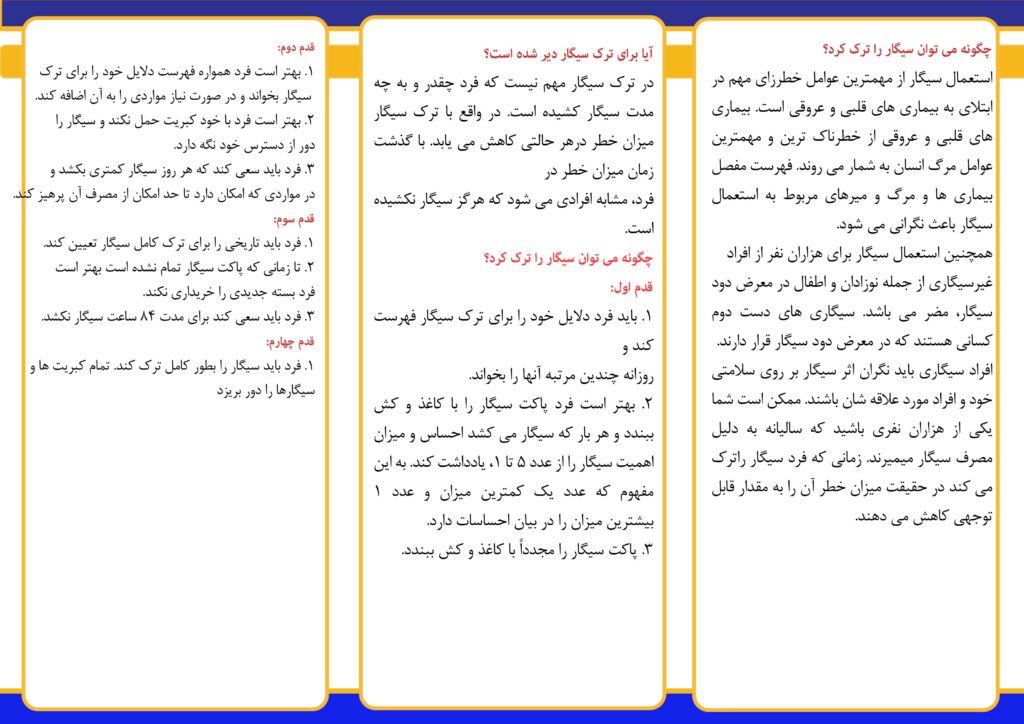 چگونه می توان سیگار را ترک کرد؟
استعمال سیگار از مهمترین عوامل خطرزای مهم در
ابتلای به بیماری های قلبی و عروقی است. بیماری
های قلبی و عروقی از خطرناک ترین و مهمترین
عوامل مرگ انسان به شمار می روند. فهرست مفصل
بیماری ها و مرگ و میرهای مربوط به استعمال
سیگار باعث نگرانی می شود.
همچنین استعمال سیگار برای هزاران نفر از افراد
غیرسیگاری از جمله نوزادان و اطفال در معرض دود
سیگار، مضر می باشد. سیگاری های دست دوم
کسانی هستند که در معرض دود سیگار قرار دارند.
افراد سیگاری باید نگران اثر سیگار بر روی سلامتی
خود و افراد مورد علاقه شان باشند. ممکن است شما
یکی از هزاران نفری باشید که سالیانه به دلیل
مصرف سیگار میمیرند. زمانی که فرد سیگار راترک
می کند در حقیقت میزان خطر آن را به مقدار قابل
توجهی کاهش می دهند.
آیا برای ترک سیگار دیر شده است؟
در ترک سیگار مهم نیست که فرد چقدر و به چه
مدت سیگار کشیده است. در واقع با ترک سیگار
میزان خطر درهر حالتی کاهش می یابد. با گذشت
زمان میزان خطر در
فرد، مشابه افرادی می شود که هرگز سیگار نکشیده
است.
چگونه می توان سیگار را ترک کرد؟
قدم اول:
۱. باید فرد دلایل خود را برای ترک سیگار فهرست
کند و
روزانه چندین مرتبه آنها را بخواند.
۲. بهتر است فرد پاکت سیگار را با کاغذ و کش
ببندد و هر بار که سیگار می کشد احساس و میزان
اهمیت سیگار را از عدد ۵ تا ۱، یادداشت کند. به این
مفهوم که عدد یک کمترین میزان و عدد ۱
بیشترین میزان را در بیان احساسات دارد.
۳. پاکت سیگار را مجدداً با کاغذ و کش ببندد.
قدم دوم:
۱. بهتر است فرد همواره فهرست دلایل خود را برای ترک
سیگار بخواند و در صورت نیاز مواردی را به آن اضافه کند.
۲. بهتر است فرد با خود کبریت حمل نکند و سیگار را
دور از دسترس خود نگه دارد.
۳. فرد باید سعی کند که هر روز سیگار کمتری بکشد و
در مواردی که امکان دارد تا حد امکان از مصرف آن پرهیز کند.
قدم سوم:
۱. فرد باید تاریخی را برای ترک کامل سیگار تعیین کند.
۲. تا زمانی که پاکت سیگار تمام نشده است بهتر است
فرد بسته جدیدی را خریداری نکند.
۳. فرد باید سعی کند برای مدت ۸۴ ساعت سیگار نکشد.
قدم چهارم:
۱. فرد باید سیگار را بطور کامل ترک کند. تمام کبریت ها و
سیگارها را دور بریزد